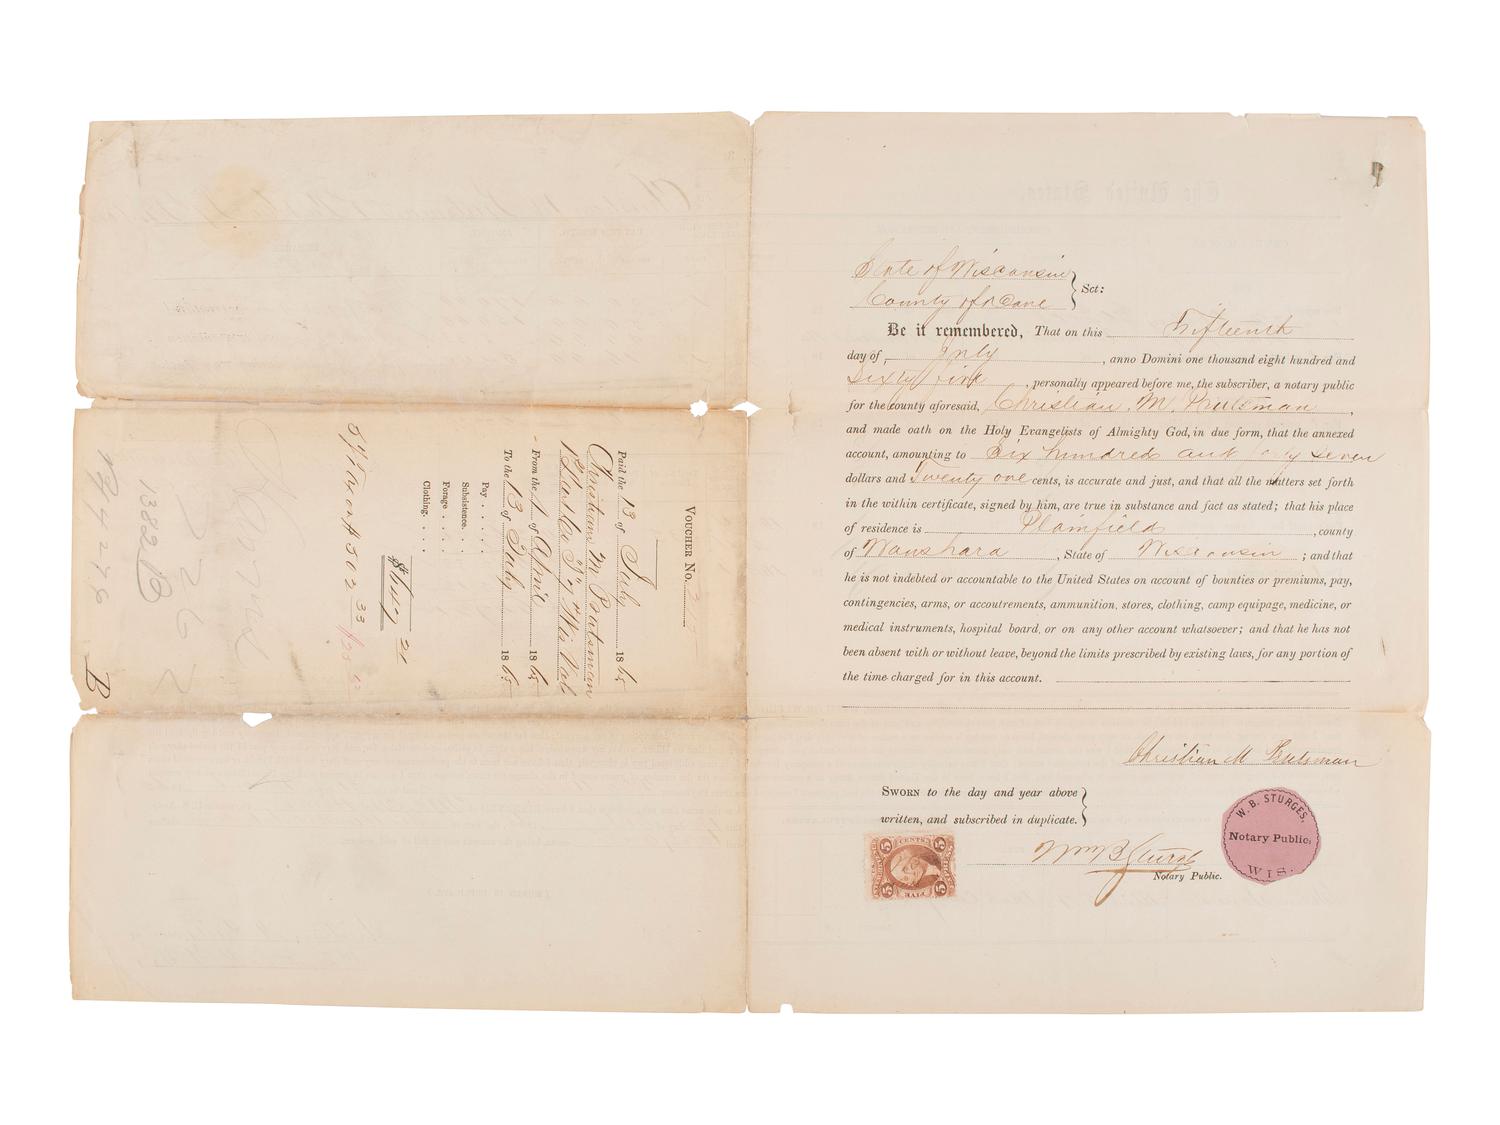 State of Wisconsin
County of Dane } Sct:
Be it remembered, That on this Fifteenth
day of July, anno Domini one thousand eight hundred and
Sixty five, personally appeared before me, the subscriber, a notary public
for the county aforesaid, Christian M. Butsman,
and made oath on the Holy Evangelists of Almighty God, in due form, that the annexed
account, amounting to Six hundred and forty seven
dollars and Twenty one cents, is accurate and just, and that all the matters set forth
in the within certificate, signed by him, are true in substance and fact as stated; that his place
of residence is Plainfield, county
of Waushara, State of Wisconsin; and that
he is not indebted or accountable to the United States on account of bounties or premiums, pay,
contingencies, arms, or accoutrements, ammunition, stores, clothing, camp equipage, medicine, or
medical instruments, hospital board, or on any other account whatsoever; and that he has not
been absent with or without leave, beyond the limits prescribed by existing laws, for any portion of
the time charged for in this account.
Christian M Butsman
Sworn to the day and year above
written, and subscribed in duplicate. }
Wm B Sturges
Notary Public.
W. B. STURGES,
Notary Public,
WIS.
5 CENTS 5
5 FIVE 5
Voucher No.
Paid the 13 of July 1865
Christian M Butsman
From the 1 of April 1865
To the 13 of July 1865
Pay
Subsistence
Forage
Clothing
$647 21
502 33
1382 B
2262
B